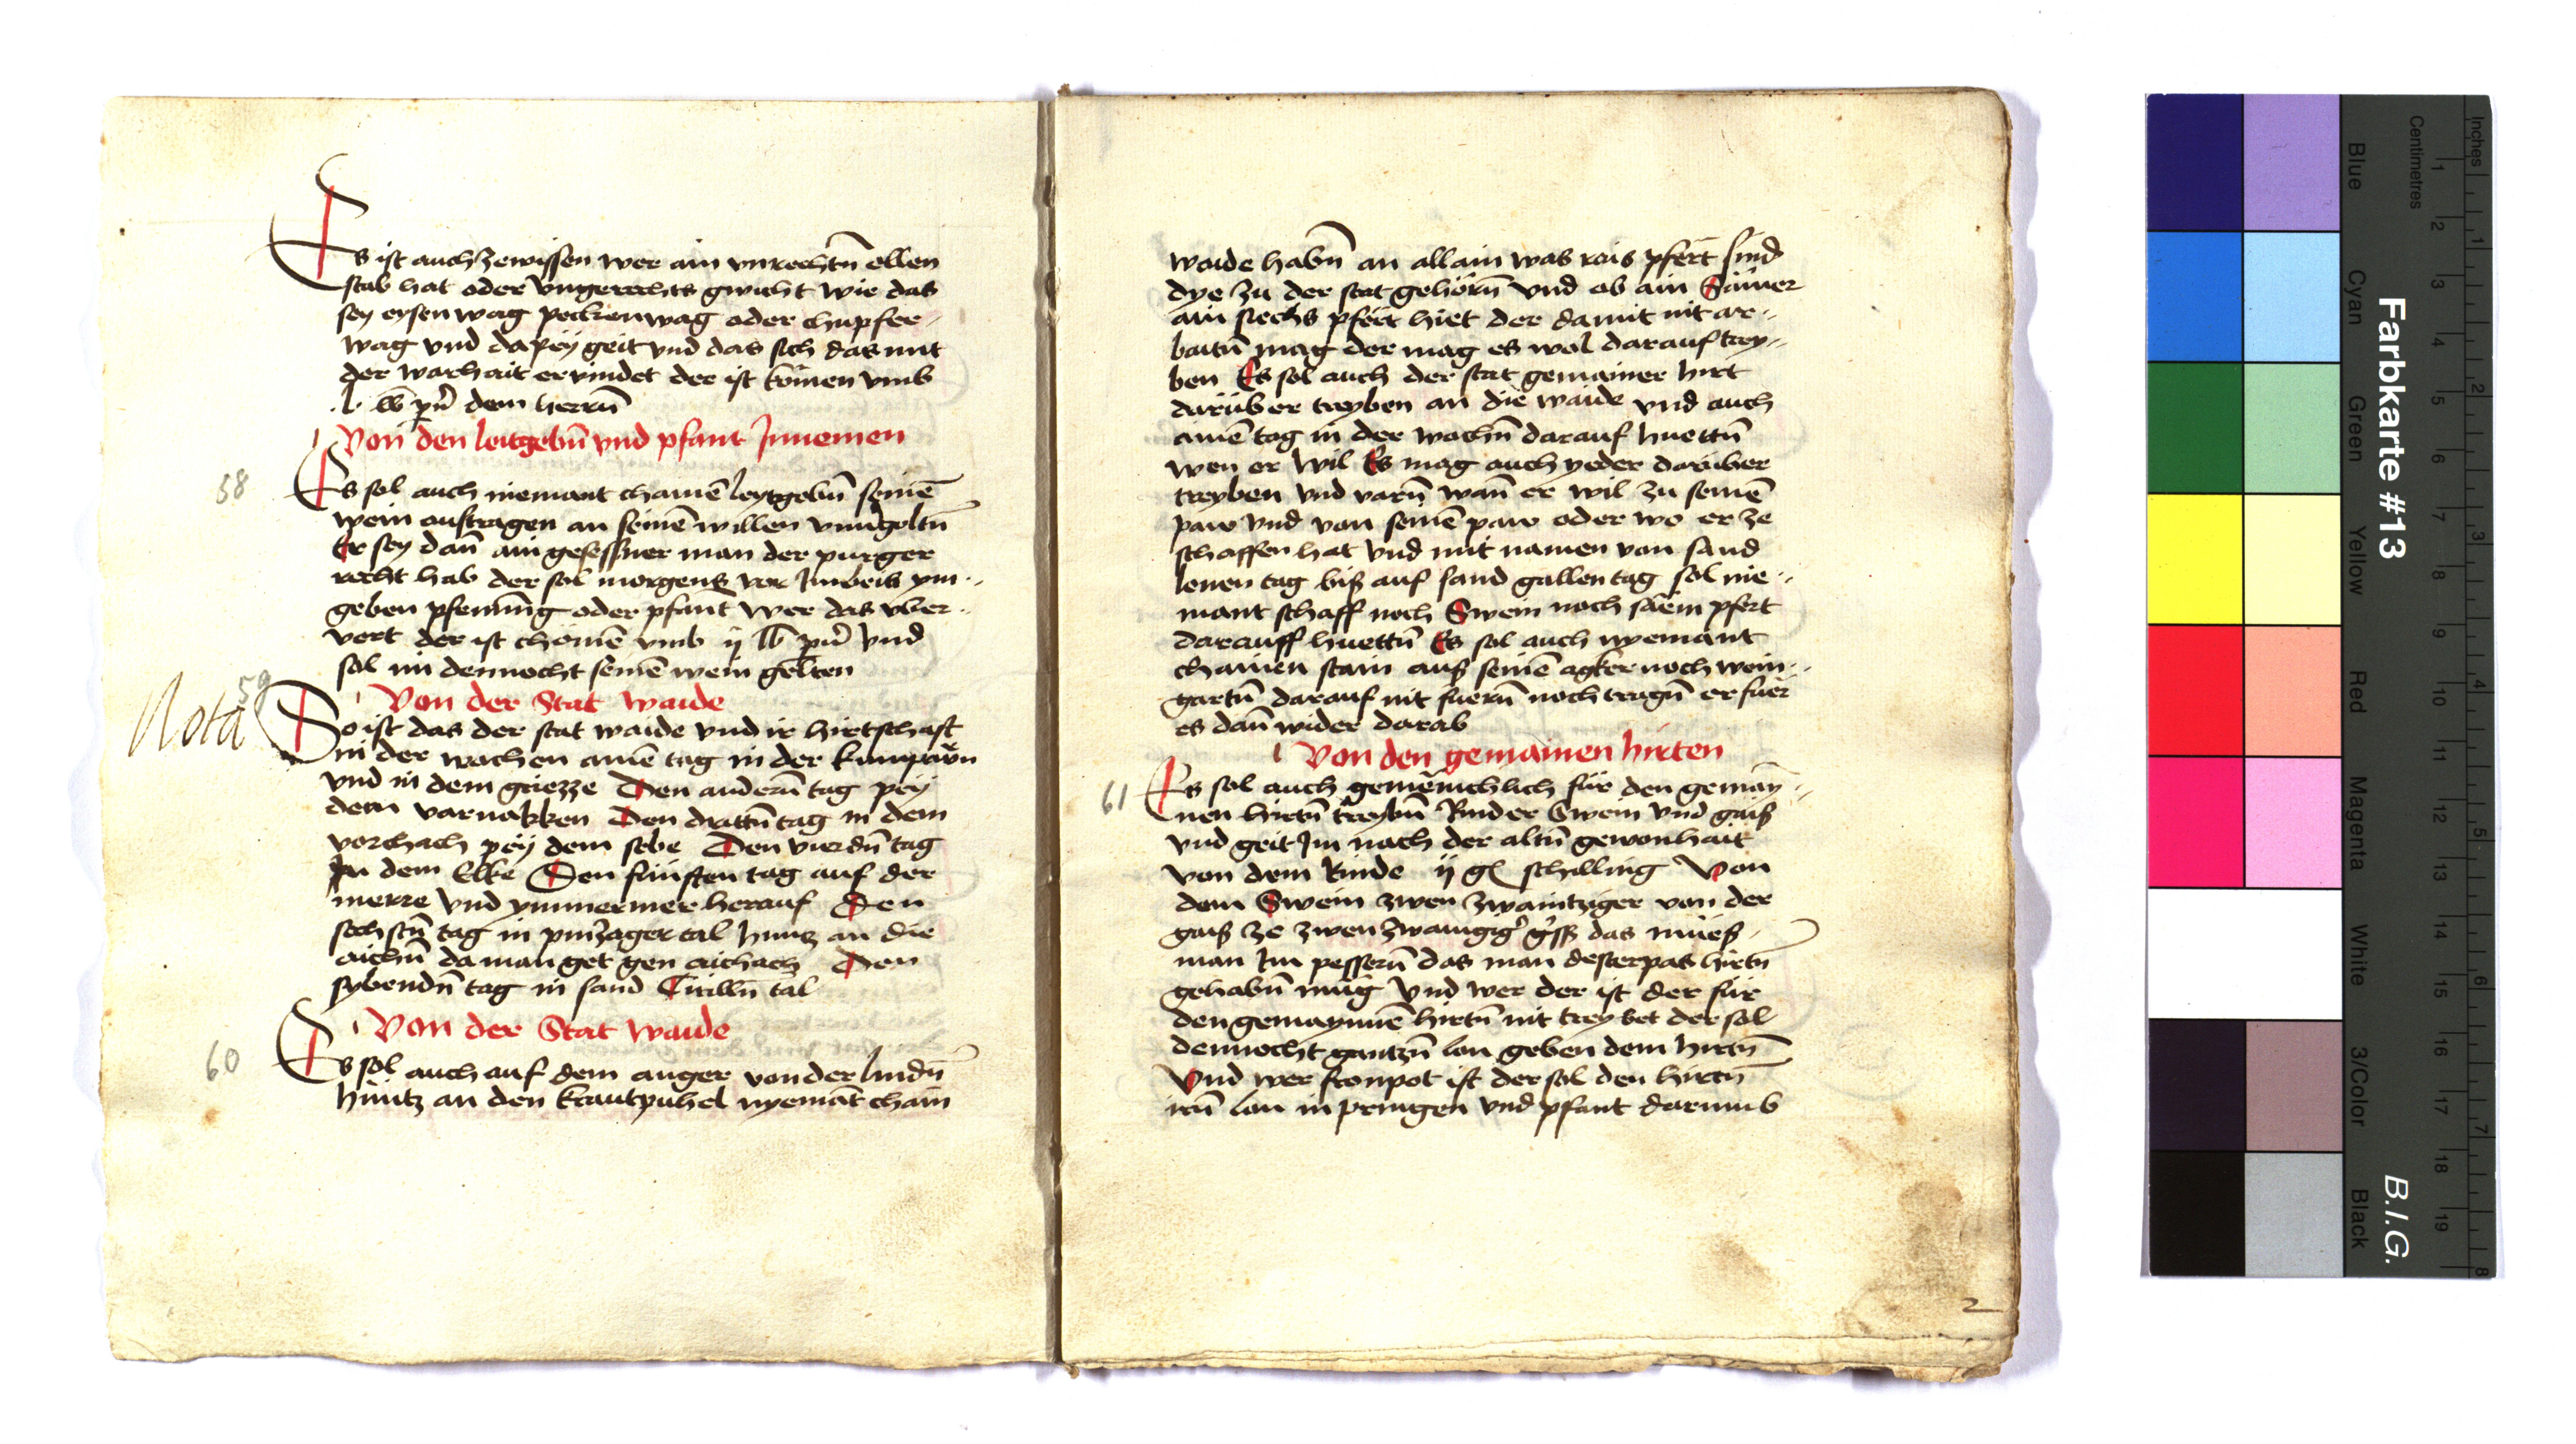 Es ist auch zewissen wer ain vnrechtn̄ ellen
stab hat oder vngerechts gwicht wie das
sey eysen wag peckenwag oder chupfer-
wag vnd dapey geit vnd das sich das mit
der warhait ervindet der ist kōmen vmb
.l. lb pn̄ dem herrn̄
Von den leitgebn̄ vnd pfant Innemen
58
Es sol auch niemant chainē leytgebn̄ seinē
wein austragen an seinē willen vnuergoltn̄
Er sey dan̄ ain gesessner man der purger
recht hab der sol morgens vor Imbeis ym-
geben pfenning oder pfant Wer das vber-
vert der ist chōmē vmb ij lb pn̄ vnd
sol im dennocht seinē wein gelten
Nota
59
Von der Stat Waide
So ist das der stat waide vnd ir hirtschaft
in der wochen ainē tag in der
vnd in dem griezze Den andern̄ tag pey
dem varnakken Den drittn̄ tag in dem
vorchach pey dem sebe Den vierdn̄ tag
In dem Elke Den fünften tag auf der
merre vnd ymmermer herauf Den
sechstn̄ tag in tal hintz an die
aichn̄ da man get gen aichach Den
sybendn̄ tag in sand tal
Von der Stat Waide
60
Es sol auch auf dem anger von der lindn̄
hintz an den krautpuhel nyemāt chain
waide habn̄ an allain was rais pfert sind
dye zu der stat gehörn̄ vnd ob ain Sāmer
ain siechs pfert hiet der damit nit ar-
baitn̄ mag der mag es wol darauf trey-
ben Es sol auch der stat gemainer hirt
darüber treyben an die waide vnd auch
ainē tag in der wochn̄ darauf huettn̄
wen er wil Es mag auch yeder darüber
treyben vnd varn̄ wan̄ er wil zu seinē
paw vnd von seinē paw oder wo er ze
schaffen hat vnd mit namen von sand
lenen tag biß auf sand gallen tag sol nie-
mant schaff noch Swein noch pfert
darauff huettn̄ Es sol auch nyemant
chainen stain auß seinē agker noch wein-
gartn̄ darauf nit fuern̄ noch tragn̄ er fuer
es dan̄ wider darab
Von den gemainen hirten
61
Es sol auch gemēinchlich für den gemay-
nen hirtn̄ treybn̄ Rinder Swein vnd gaiß
vnd geit Im nach der altn̄ gewonhait
von dem Rinde ij gl schilling Von
dem Swein zwen zwaintziger von der
gaiß ze zwen das mueß
man Im pessern̄ das man desterpas hirtn̄
gehabn̄ mug Vnd wer der ist der für
den gemaynnē hirtn̄ nit treybet der sol
dennocht gantzn̄ lon geben dem hirtn̄
Vnd wer fronpot ist der sol den hirtn̄
irn̄ lon in pringen vnd pfant darumb
2
Farbkarte #13
B.I.G.
Inches
Centimetres
1 2 3 4 5 6 7 8 9 10 11 12 13 14 15 16 17 18 19
1 2 3 4 5 6 7 8
Blue
Cyan
Green
Yellow
Red
Magenta
White
3/Color
Black